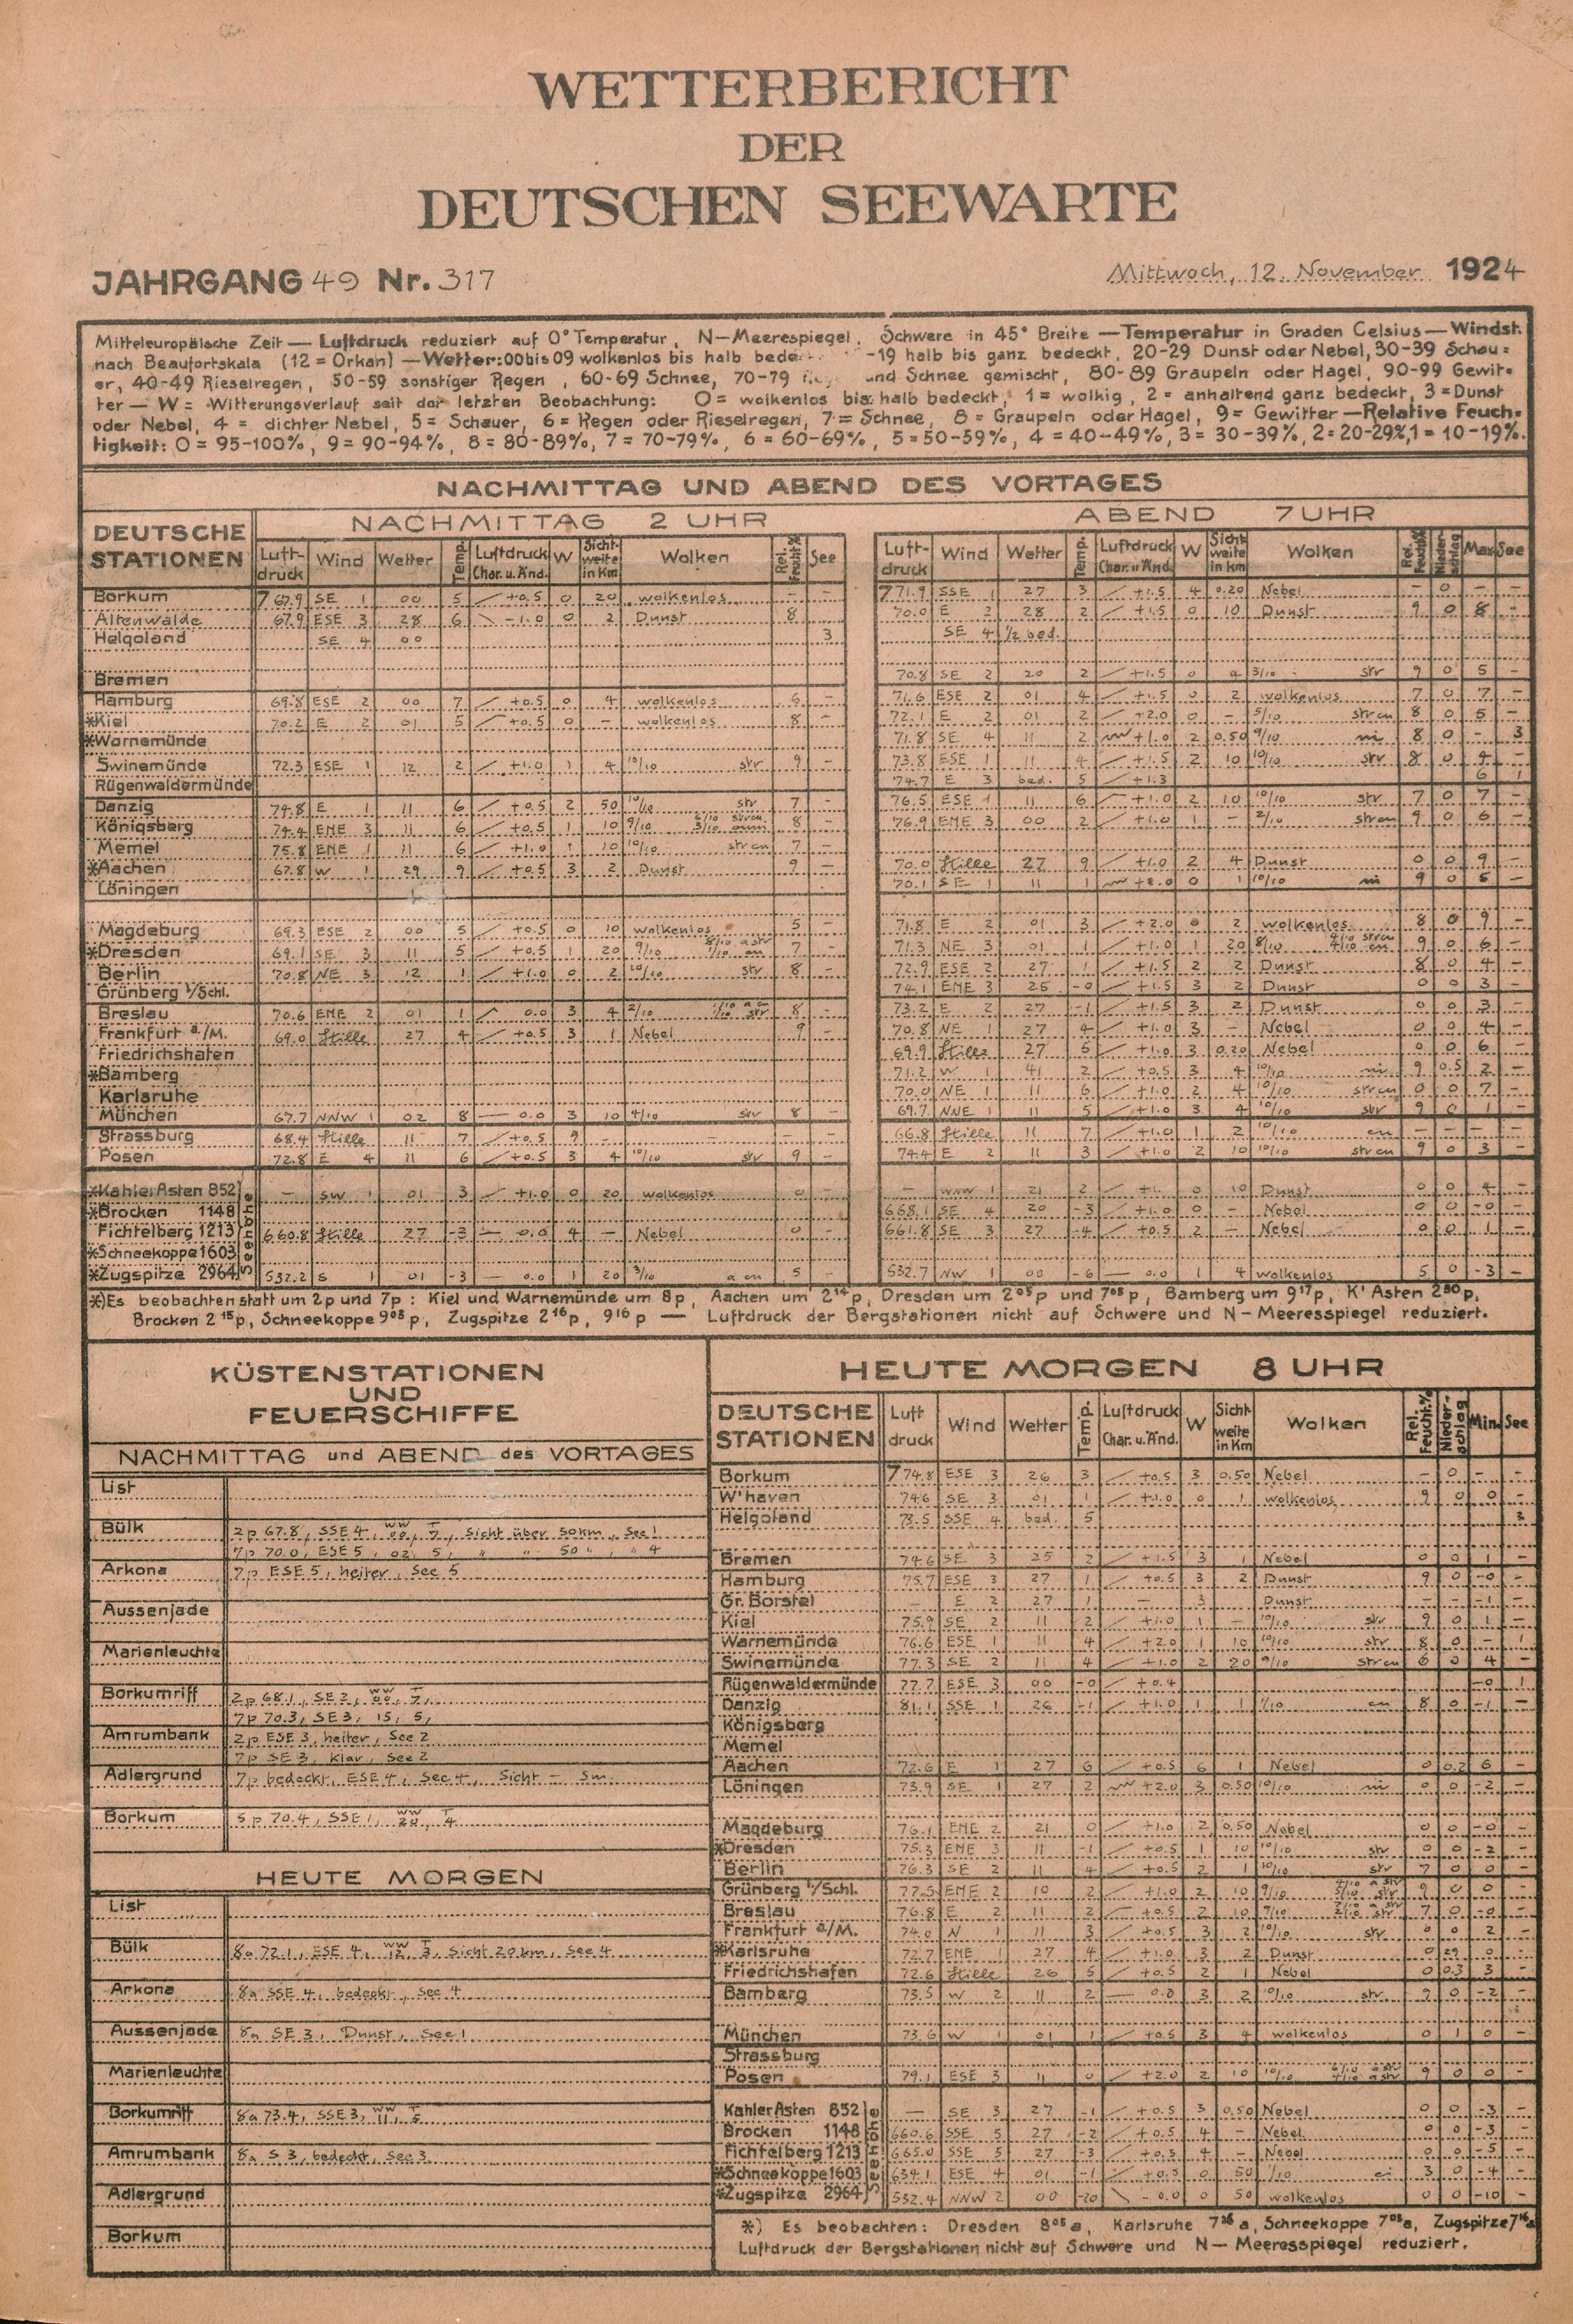 WETTERBERICHT
DER
DEUTSCHEN SEEWARTE
JAHRGANG 49 Nr. 317 Mittwoch, 12. November 1924
Mitteleuropäische Zeit — Luftdruck reduziert auf 0° Temperatur, N—Meerespiegel, Schwere in 45° Breite — Temperatur in Graden Celsius — Windst.
nach Beaufortskala (12 = Orkan) — Wetter: 00 bis 09 wolkenlos bis halb bede -19 halb bis ganz bedeckt, 20-29 Dunst oder Nebel, 30-39 Schau=
er, 40-49 Rieselregen, 50-59 sonstiger Regen, 60-69 Schnee, 70-79 und Schnee gemischt, 80-89 Graupeln oder Hagel, 90-99 Gewit=
ter — W = Witterungsverlauf seit der letzten Beobachtung: 0 = wolkenlos bis halb bedeckt, 1 = wolkig, 2 = anhaltend ganz bedeckt, 3 = Dunst
oder Nebel, 4 = dichter Nebel, 5 = Schauer, 6 = Regen oder Rieselregen, 7 = Schnee, 8 = Graupeln oder Hagel, 9 = Gewitter — Relative Feuch=
tigkeit: 0 = 95-100%, 9 = 90-94%, 8 = 80-89%, 7 = 70-79%, 6 = 60-69%, 5 = 50-59%, 4 = 40-49%, 3 = 30-39%, 2 = 20-29%, 1 = 10-19%.
NACHMITTAG UND ABEND DES VORTAGES
DEUTSCHE STATIONEN NACHMITTAG 2 UHR ABEND 7 UHR
Luft-druck Wind Wetter Temp. Luftdruck Char. u. Änd. W Sicht-weite in Km Wolken Rel. Feucht.% See Luft-druck Wind Wetter Temp. Luftdruck Char. u. Änd. W Sicht weite in km Wolken Rel. Feucht.% Nieder-schlag Max See
Borkum 767.9 SE 1 00 5 +0.5 0 20 wolkenlos - - 771.9 SSE 1 27 3 +1.5 4 0.20 Nebel - 0 - -
Altenwalde 67.9 ESE 3 28 6 -1.0 0 2 Dunst 8 70.0 E 2 28 2 +1.5 0 10 Dunst 9 0 8 -
Helgoland SE 4 00 3 SE 4 1/2 bed.
Bremen 70.8 SE 2 20 2 +1.5 0 4 3/10 str 9 0 5 -
Hamburg 69.8 ESE 2 00 7 +0.5 0 4 wolkenlos 6 - 71.6 ESE 2 01 4 +1.5 0 2 wolkenlos 7 0 7 -
*Kiel 70.2 E 2 01 5 +0.5 0 - wolkenlos 8 - 72.1 E 2 01 2 +2.0 0 - 5/10 strcu 8 0 5 -
*Warnemünde 71.8 SE 4 11 2 +1.0 2 0.50 9/10 ni 8 0 - 3
Swinemünde 72.3 ESE 1 12 2 +1.0 1 4 10/10 str 9 - 73.8 ESE 1 11 4 +1.5 2 10 10/10 str 8 0 4 -
Rügenwaldermünde 74.7 E 3 bed. 5 +1.3 6 1
Danzig 74.8 E 1 11 6 +0.5 2 50 10/10 str 7 - 76.5 ESE 1 11 6 +1.0 2 10 10/10 str 7 0 7 -
Königsberg 74.4 ENE 3 11 6 +0.5 1 10 9/10 8 - 76.9 ENE 3 00 2 +1.0 1 - 2/10 strcu 9 0 6 -
Memel 75.8 ENE 1 11 6 +1.0 1 10 10/10 strcu 7 -
*Aachen 67.8 W 1 29 9 +0.5 3 2 Dunst 9 - 70.0 Stille 27 9 +1.0 2 4 Dunst 0 0 9 -
Löningen 70.1 SE 1 11 1 +2.0 0 1 10/10 ni 9 0 5 -
Magdeburg 69.3 ESE 2 00 5 +0.5 0 10 wolkenlos 5 - 71.8 E 2 01 3 +2.0 0 2 wolkenlos 8 0 9 -
*Dresden 69.1 SE 3 11 5 +0.5 1 20 9/10 8/10 astr 1/10 cu 7 - 71.3 NE 3 01 1 +1.0 1 20 8/10 9 0 6 -
Berlin 70.8 NE 3 12 1 +1.0 0 2 10/10 str 8 - 72.9 ESE 2 27 1 +1.5 2 2 Dunst 8 0 4 -
Grünberg i/Schl. 74.1 ENE 3 25 -0 +1.5 3 2 Dunst 0 0 3 -
Breslau 70.6 ENE 2 01 1 0.0 3 4 2/10 8 - 73.2 E 2 27 -1 +1.5 3 2 Dunst 0 0 3 -
Frankfurt a/M. 69.0 Stille 27 4 +0.5 3 1 Nebel 9 - 70.8 NE 1 27 4 +1.0 3 - Nebel 0 0 4 -
Friedrichshafen 69.9 Stille 27 5 +1.0 3 0.20 Nebel 0 0 6 -
*Bamberg 71.2 W 1 41 2 +0.5 3 4 10/10 ni 9 0.5 2 -
Karlsruhe 70.0 NE 1 11 6 +1.0 2 4 10/10 strcu 0 0 7 -
München 67.7 NNW 1 02 8 0.0 3 10 4/10 str 8 - 69.7 NNE 1 11 5 +1.0 3 4 10/10 str 9 0 1 -
Strassburg 68.4 Stille 11 7 +0.5 9 - - - - 66.8 Stille 11 7 +1.0 1 2 10/10 cu - - - -
Posen 72.8 E 4 11 6 +0.5 3 4 10/10 str 9 - 74.4 E 2 11 3 +1.0 2 10 10/10 strcu 9 0 3 -
Seehöhe
*Kahler Asten 852 - SW 1 01 3 +1.0 0 20 wolkenlos 0 - - WNW 1 21 2 +1. 0 10 Dunst 0 0 4 -
*Brocken 1148 668.1 SE 4 20 -3 +1.0 0 - Nebel 0 0 -0 -
Fichtelberg 1213 660.8 Stille 27 -3 0.0 4 - Nebel 0 - 661.8 SE 3 27 -4 +0.5 2 - Nebel 0 0 1 -
*Schneekoppe 1603
*Zugspitze 2964 532.2 S 1 01 -3 0.0 1 20 3/10 a cu 5 - 532.7 NW 1 00 -6 0.0 1 4 wolkenlos 5 0 -3 -
*) Es beobachten statt um 2p und 7p: Kiel und Warnemünde um 8p, Aachen um 2 14 p, Dresden um 2 05 p und 7 05 p, Bamberg um 9 17 p, K' Asten 2 50 p,
Brocken 2 15 p, Schneekoppe 9 05 p, Zugspitze 2 16 p, 9 16 p — Luftdruck der Bergstationen nicht auf Schwere und N—Meeresspiegel reduziert.
KÜSTENSTATIONEN
UND
FEUERSCHIFFE
NACHMITTAG und ABEND des VORTAGES
List
Bülk 2p 67.8, SSE 4, ww 00, T 7, Sicht über 50km, See 1
7p 70.0, ESE 5, 02, 5, " " 50 ", " 4
Arkona 7p ESE 5, heiter, See 5
Aussenjade
Marienleuchte
Borkumriff 2p 68.1, SE 2, ww 00, T 7,
7p 70.3, SE 3, 15, 5,
Amrumbank 2p ESE 3, heiter, See 2
7p SE 3, klar, See 2
Adlergrund 7p bedeckt, ESE 4, See 4, Sicht - Sm.
Borkum 5p 70.4, SSE 1, ww 20, T 4
HEUTE MORGEN
List
Bülk 8a 72.1, ESE 4, ww 12, T 3, Sicht 20km, See 4
Arkona 8a SSE 4, bedeckt, See 4
Aussenjade 8a SE 3, Dunst, See 1
Marienleuchte
Borkumriff 8a 73.4, SSE 3, ww 11, T 5
Amrumbank 8a S 3, bedeckt, See 3
Adlergrund
Borkum
HEUTE MORGEN 8 UHR
DEUTSCHE STATIONEN Luft druck Wind Wetter Temp. Luftdruck Char. u. Änd. W Sicht-weite in Km Wolken Rel. Feucht.% Nieder-schlag Min. See
Borkum 774.8 ESE 3 26 3 +0.5 3 0.50 Nebel - 0 - -
W'haven 74.6 SE 3 01 1 +1.0 0 1 wolkenlos 9 0 0 -
Helgoland 73.5 SSE 4 bed. 5 3
Bremen 74.6 SE 3 25 2 +1.5 3 1 Nebel 0 0 1 -
Hamburg 75.7 ESE 3 27 1 +0.5 3 2 Dunst 9 0 -0 -
Gr. Borstel - E 2 27 1 - 3 Dunst - - -1 -
Kiel 75.9 SE 2 11 2 +1.0 1 - 10/10 str 9 0 1 -
Warnemünde 76.6 ESE 1 11 4 +2.0 1 10 10/10 str 8 0 - 1
Swinemünde 77.3 SE 2 11 4 +1.0 2 20 9/10 strcu 6 0 4 -
Rügenwaldermünde 77.7 ESE 3 00 -0 +0.4 -0 1
Danzig 81.1 SSE 1 26 -1 +1.0 1 1 1/10 cu 8 0 -1 -
Königsberg
Memel
Aachen 72.6 E 1 27 6 +0.5 6 1 Nebel 0 0.2 6 -
Löningen 73.9 SE 1 27 2 +2.0 3 0.50 10/10 ni 0 0 -2 -
Magdeburg 76.1 ENE 2 21 0 +1.0 2 0.50 Nebel 0 0 -0 -
*Dresden 75.3 ENE 3 11 -1 +0.5 1 10 10/10 str 0 0 -2 -
Berlin 76.3 SE 2 11 4 +0.5 2 1 10/10 str 7 0 0 -
Grünberg i/Schl. 77.5 ENE 2 10 2 +1.0 2 10 9/10 9 0 0 -
Breslau 76.8 E 2 11 2 +0.5 2 10 9/10 7 0 -0 -
Frankfurt a/M. 74.0 N 1 11 3 +0.5 3 2 10/10 str 0 0 2 -
*Karlsruhe 72.7 ENE 1 27 4 +1.0 3 2 Dunst 0 0 -
Friedrichshafen 72.6 Stille 26 5 +0.5 2 1 Nebel 0 0.3 3 -
Bamberg 73.5 W 2 11 2 0.0 3 2 10/10 str 9 0 -2 -
München 73.6 W 1 01 1 +0.5 3 4 wolkenlos 0 1 0 -
Strassburg
Posen 79.1 ESE 3 11 0 +2.0 2 10 10/10 9 0 0 -
Seehöhe
Kahler Asten 852 — SE 3 27 -1 +0.5 3 0.50 Nebel 0 0 -3 -
Brocken 1148 660.6 SSE 5 27 -2 +0.5 4 - Nebel 0 0 -3 -
Fichtelberg 1213 665.0 SSE 5 27 -3 +0.5 4 - Nebel 0 0 -5 -
*Schneekoppe 1603 634.1 ESE 4 01 -1 +0.5 0 50 1/10 ci 3 0 -4 -
*Zugspitze 2964 532.4 NNW 2 00 -20 - 0.0 0 50 wolkenlos 0 0 -10 -
*) Es beobachten: Dresden 8 05 a, Karlsruhe 7 26 a, Schneekoppe 7 05 a, Zugspitze 7 16 a
Luftdruck der Bergstationen nicht auf Schwere und N—Meeresspiegel reduziert.